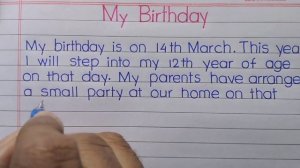 My Birthday
My birthday is on 14th March. This yea
I will step into my 12th year of age
on that day. My parents have arrange
a small party at our home on that